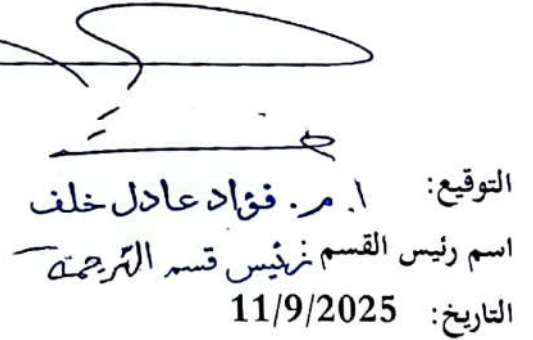 التوقيع: ا. م. فؤاد عادل خلف
اسم رئيس القسم: رئيس قسم الترجمة
التاريخ: 11/9/2025